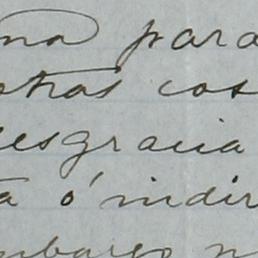 na para
otras cos
desgracia
ta ó indir
mbargo n